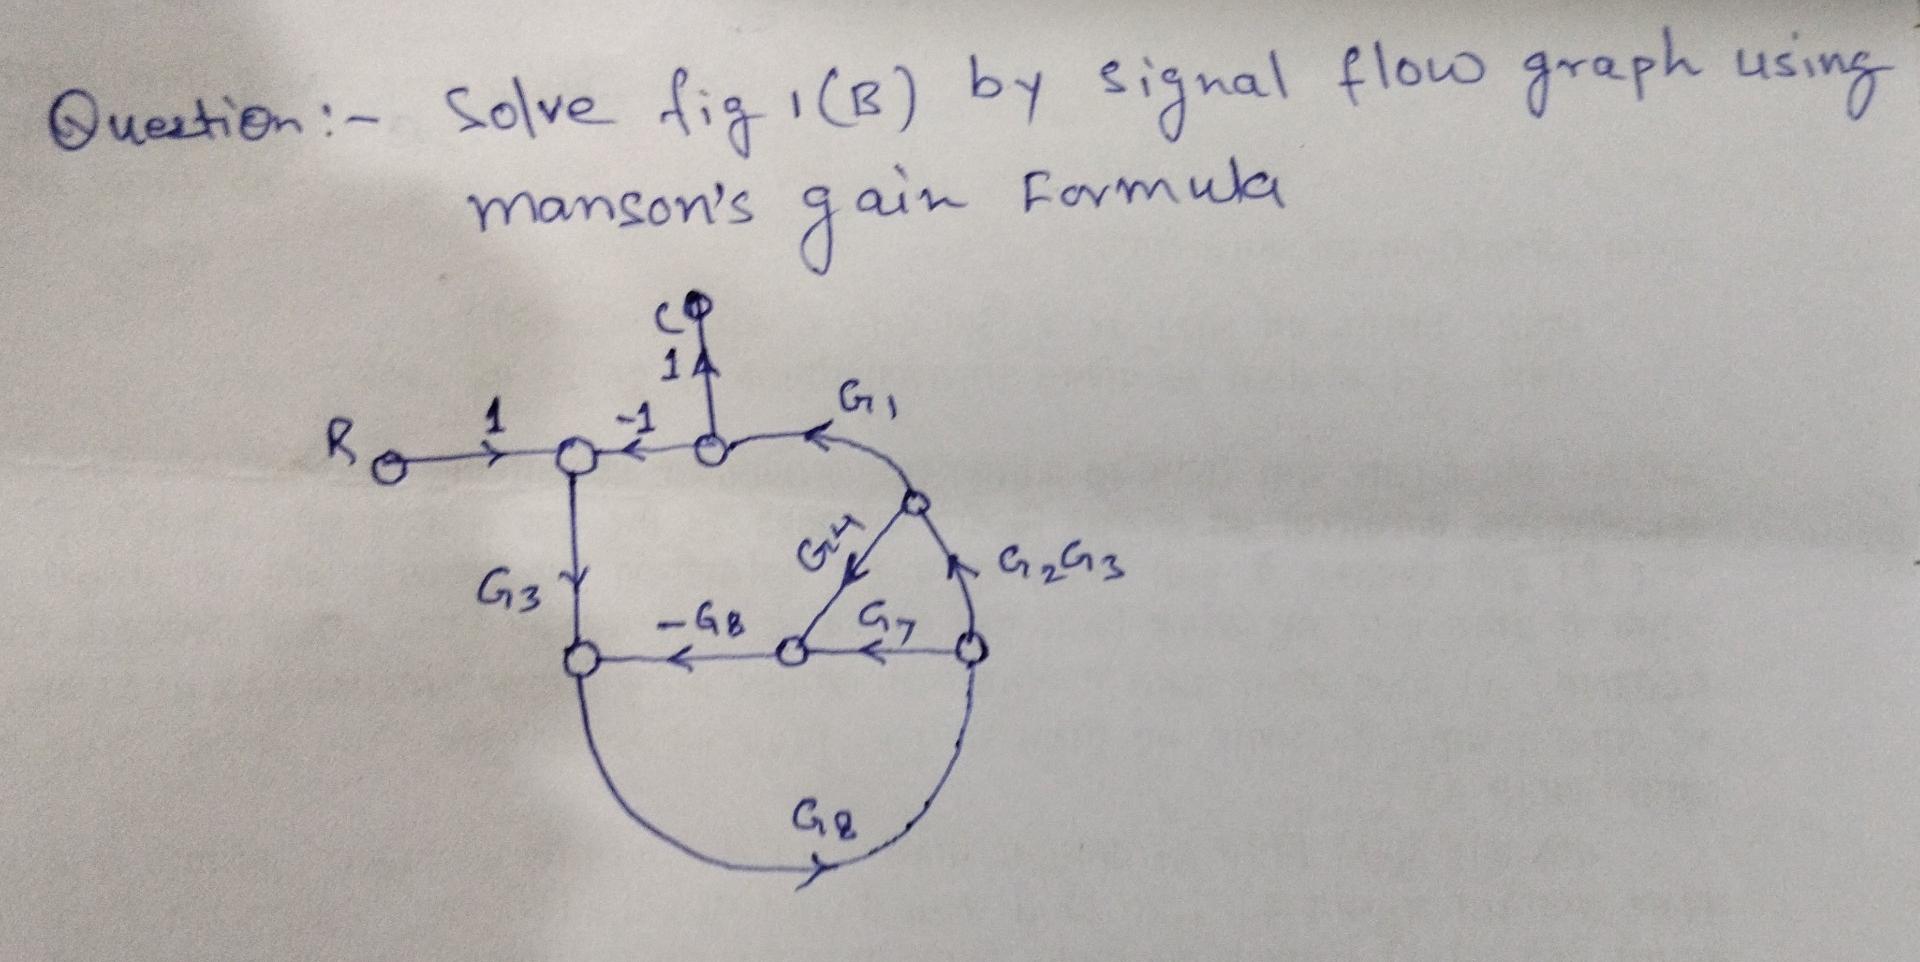 Question:- Solve fig 1(B) by signal flow graph using
manson's gain Formula
C
1
G1
R
1
-1
G4
G2G3
G3
-G8
G7
G8